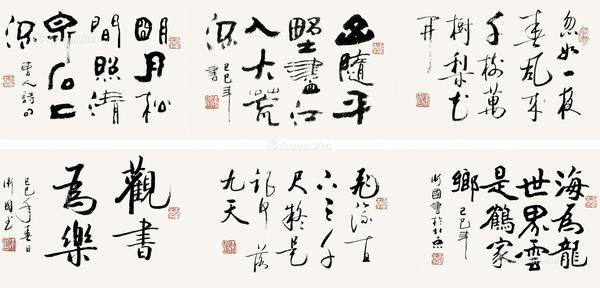 明月松
間照清
泉石上
流
唐人詩句
山隨平
野盡江
入大荒
流
己巳年
書
忽如一夜
春風來
千樹萬
樹梨花
開
觀書
為樂
己巳年春日
飛流直
下三千
尺疑是
銀河落
九天
海為龍
世界雲
是鶴家
鄉
己巳年